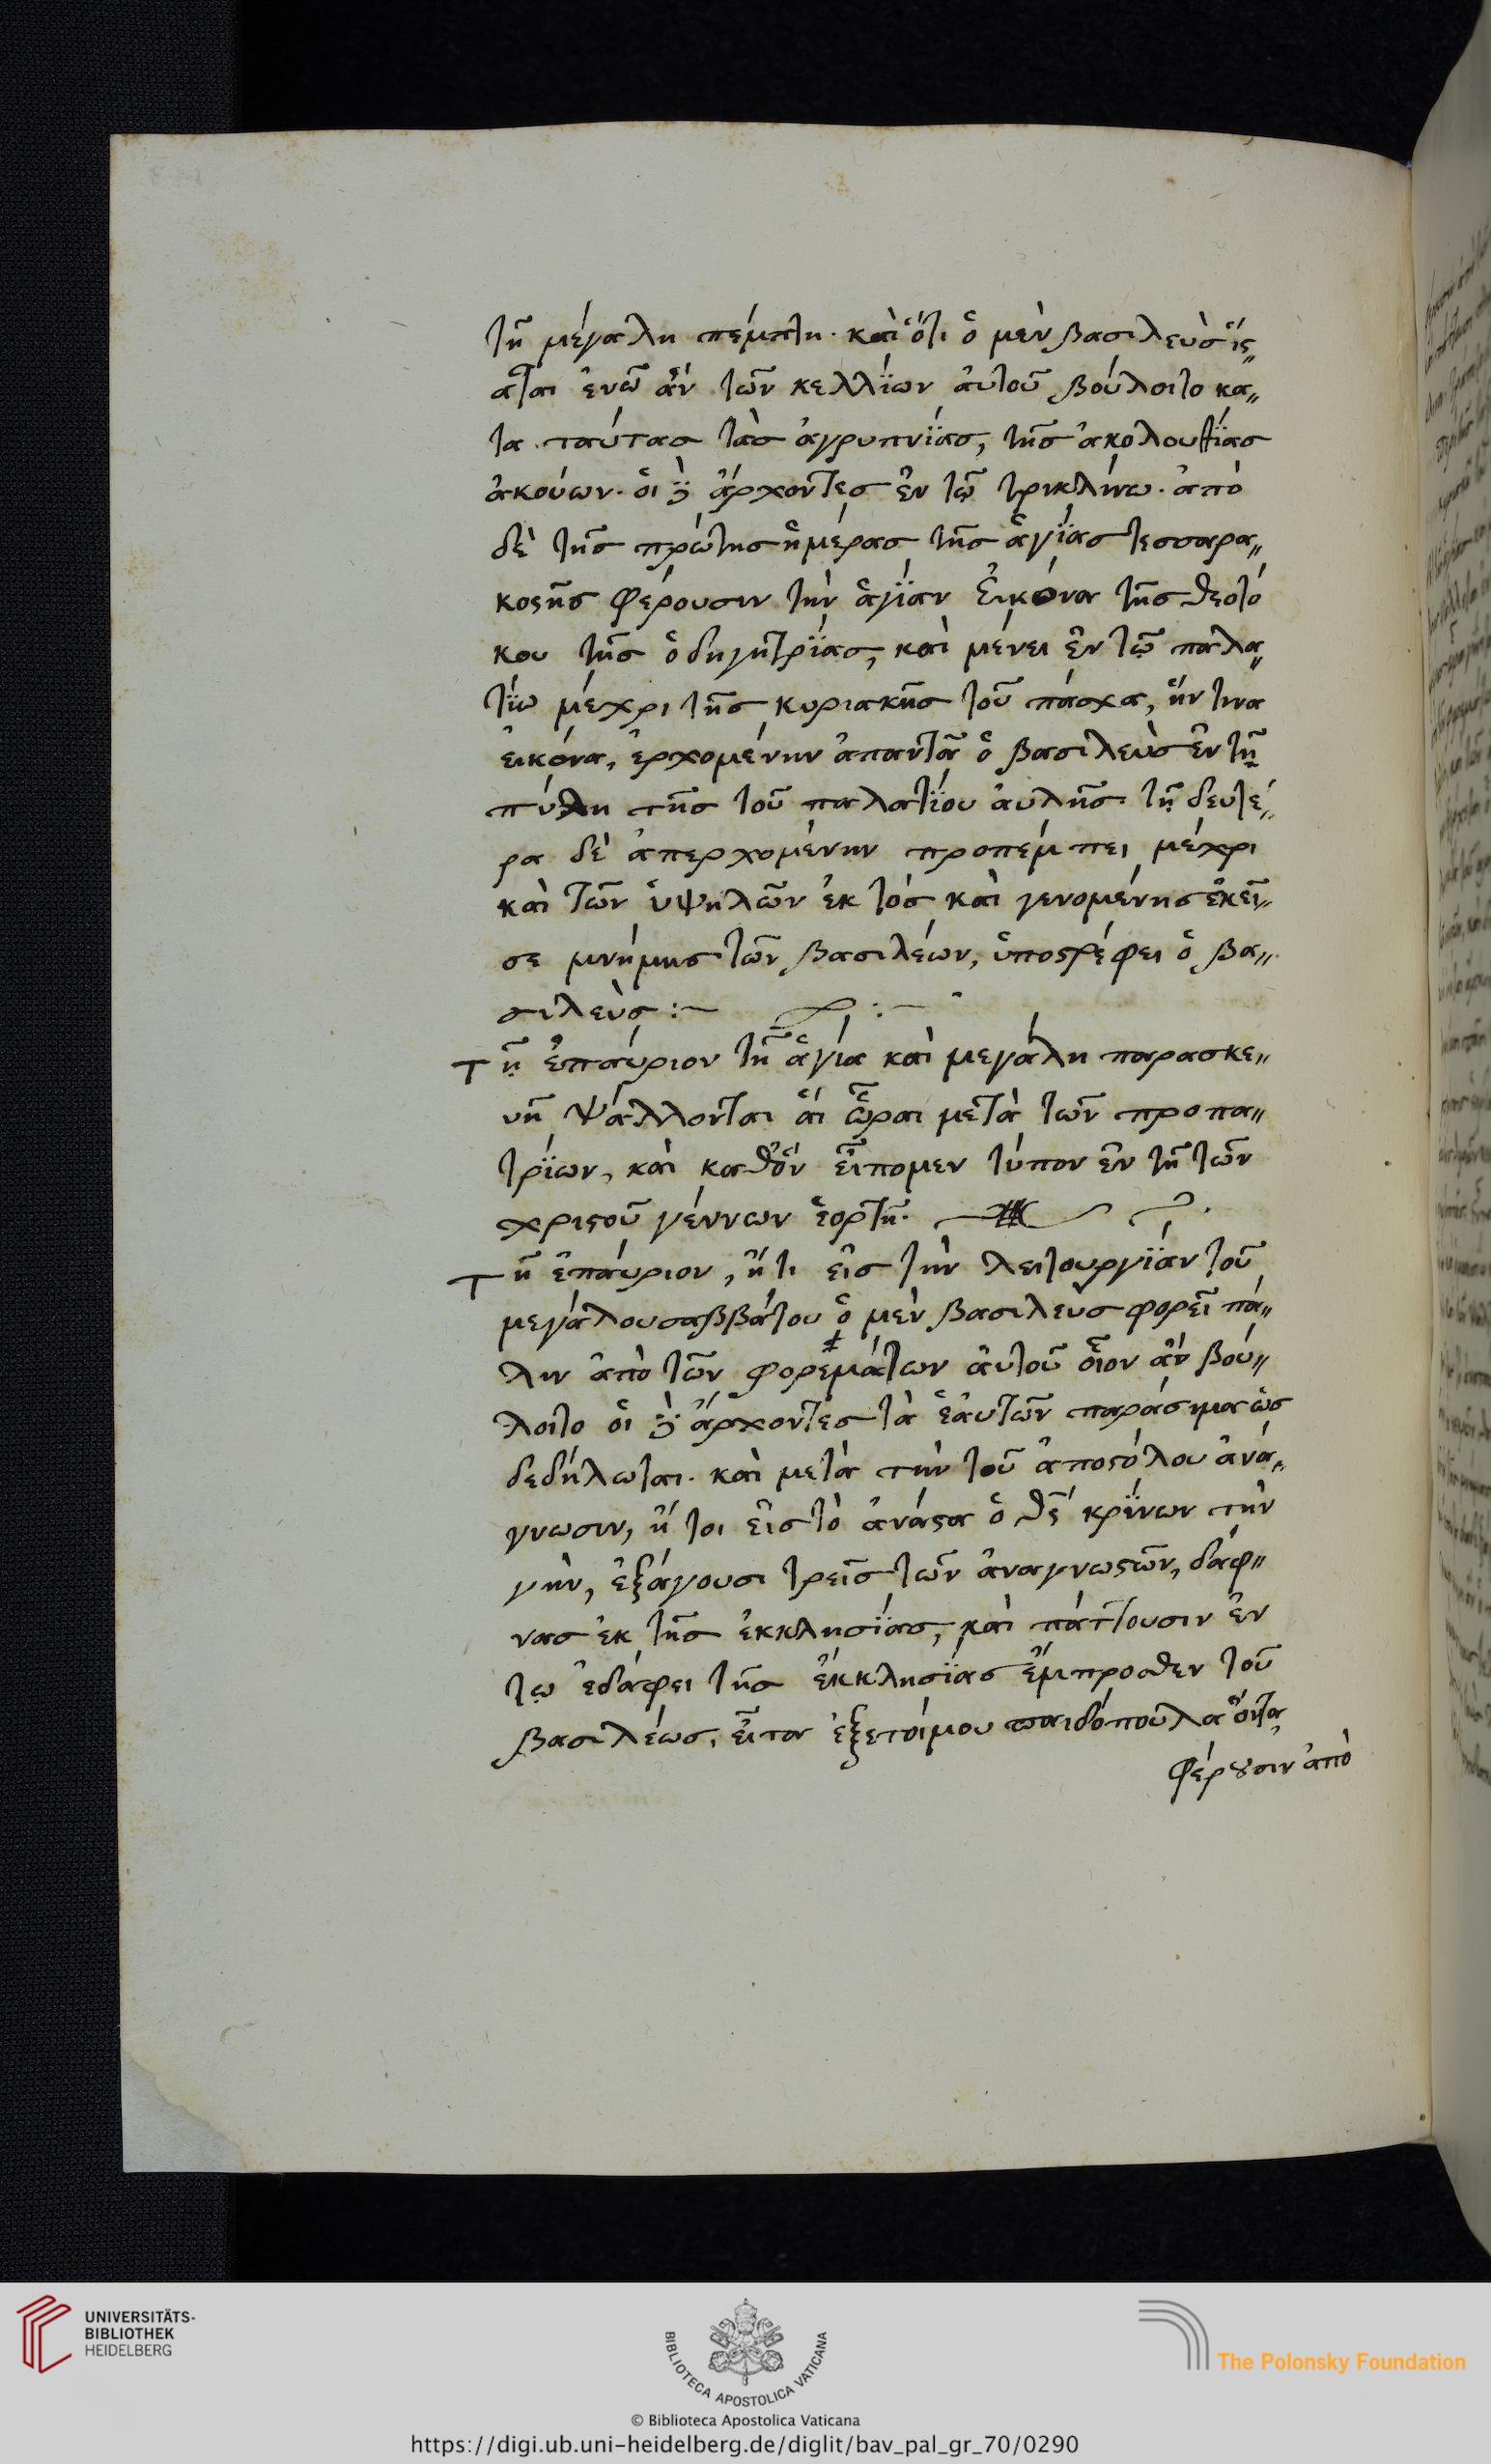 τῆ μεγάλη πέμπτη· καὶ ὅτι ὁ μὲν βασιλεὺς ἵς„
αται ἐνῶ ἂν τῶν κελλΐων αὐτοῦ βούλοιτο κα„
τα ταύτας τὰς ἀγρυπνΐας, τῆς ἀκολουθΐας
ἀκούων· οἱ δὲ ἄρχοντες ἐν τῶ τρικλίνω· ἀπὸ
δὲ τῆς πρώτης ἡμέρας τῆς ἁγΐας τεσσαρα„
κοςῆς φέρουσιν τὴν ἁγΐαν εἰκόνα τῆς θεοτό
κου τῆς ὁδηγητρΐας, καὶ μένει ἐν τῶ παλα„
τΐω μέχρι τῆς κυριακῆς τοῦ πάσχα, ἥν τινα
εἰκόνα, ἐρχομένην ἀπαντᾶ ὁ βασιλεὺς ἐν τῆ
πύλη τῆς τοῦ παλατΐου αὐλῆς· τῆ δευτέ„
ρα δὲ ἀπερχομένην προπέμπει μέχρι
καὶ τῶν ὑψηλῶν ἐκτός καὶ γενομένης ἐκεῖ„
σε μνήμης τῶν βασιλέων, ὑποςρέφει ὁ βα„
σιλεὺς :—
Τῆ ἐπαύριον τῆ ἁγία καὶ μεγάλη παρασκε„
υῆ ψάλλονται αἱ ὧραι μετὰ τῶν προπα„
τρΐων, καὶ καθὅν εἴπομεν τύπον ἐν τῆ τῶν
χριςοῦ γέννων ἑορτῆ·
Τῆ ἐπαύριον, ἤτι εἰς τὴν λειτουργΐαν τοῦ
μεγάλουσαββάτου ὁ μὲν βασιλεὺς φορεῖ πά„
λιν ἀπὸ τῶν φορεμάτων αὐτοῦ οἷον ἂν βού„
λοιτο οἱ δὲ ἄρχοντες τὰ ἑαυτῶν παράσημα ὡς
δεδήλωται· καὶ μετὰ τὴν τοῦ ἀποςόλου ἀνά„
γνωσιν, ἤτοι εἰς τὸ ἀνάςα ὁ θς κρΐνων τὴν
γὴν, ἐξάγουσι τρεῖς τῶν ἀναγνωςῶν, δάφ„
νας ἐκ τῆς ἐκκλησΐας, καὶ πάττουσιν ἐν
τῷ ἐδάφει τῆς ἐκκλησΐας ἔμπροσθεν τοῦ
βασιλέως, εἶτα ἐξετοίμου παιδόπουλα ὄντα
φέρουσιν ἀπὸ
UNIVERSITÄTS-
BIBLIOTHEK
HEIDELBERG
BIBLIOTECA APOSTOLICA VATICANA
The Polonsky Foundation
© Biblioteca Apostolica Vaticana
https://digi.ub.uni-heidelberg.de/diglit/bav_pal_gr_70/0290